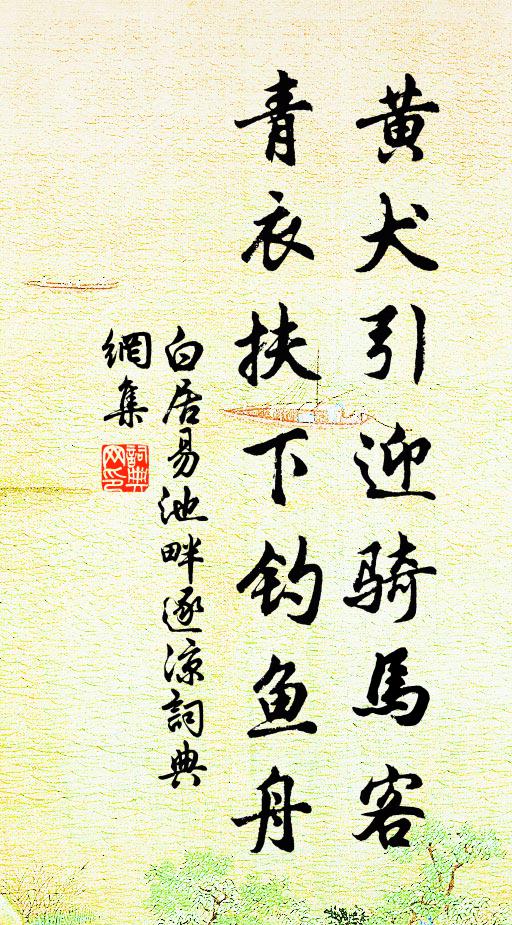 黄犬引迎骑馬客
青衣扶下钓鱼舟
白居易池畔逐凉詞典
網集
詞典
网印